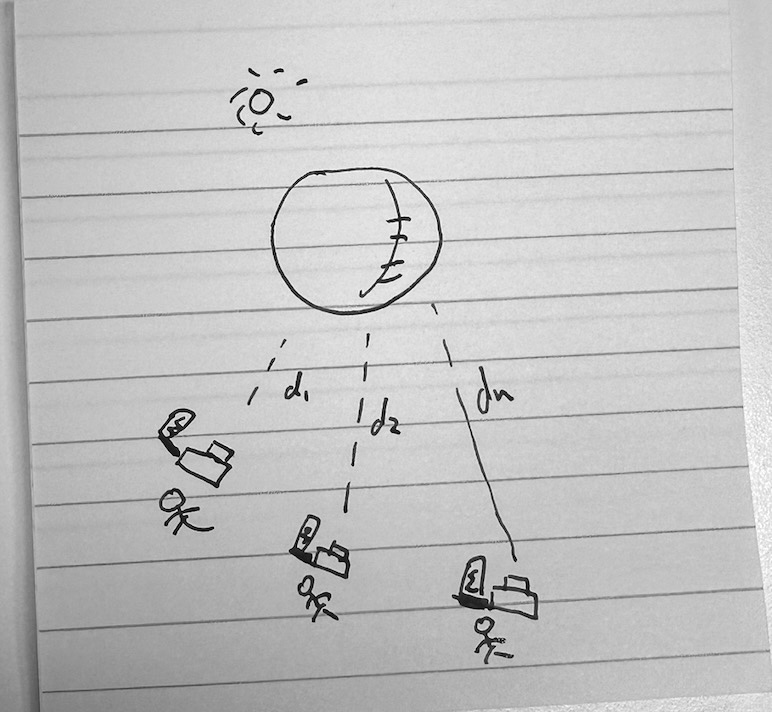 d₁
d₂
dn